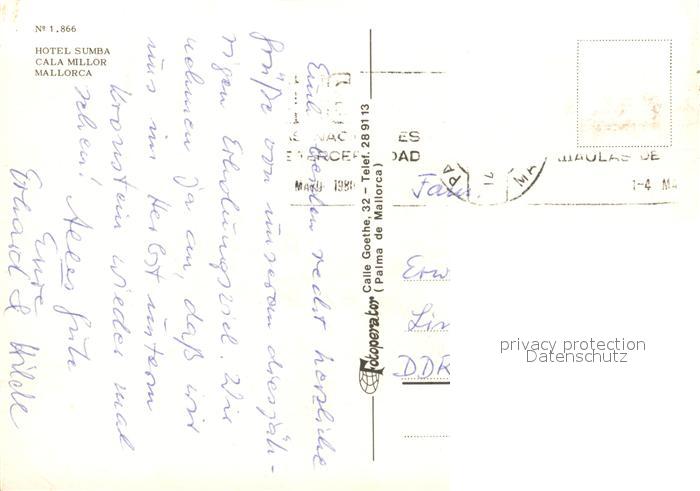 Nº 1.866
HOTEL SUMBA
CALA MILLOR
MALLORCA
Euch beiden recht herzliche
Grüße von unserem diesjäh-
rigen Erholungsziel. Wir
nehmen ja an, daß wir
uns im Herbst unterm
Kronstein wieder mal
sehen! Alles Gute
Eure
Erhard & Hilde
Fotoperator
Calle Goethe, 32 – Telef. 28 91 13
( Palma de Mallorca )
NAC ES
TERCER DAD
MAYO 198
PA
MA
AULAS DE
1-4 MA
Fam.
Erw
Lin
DDR
privacy protection
Datenschutz